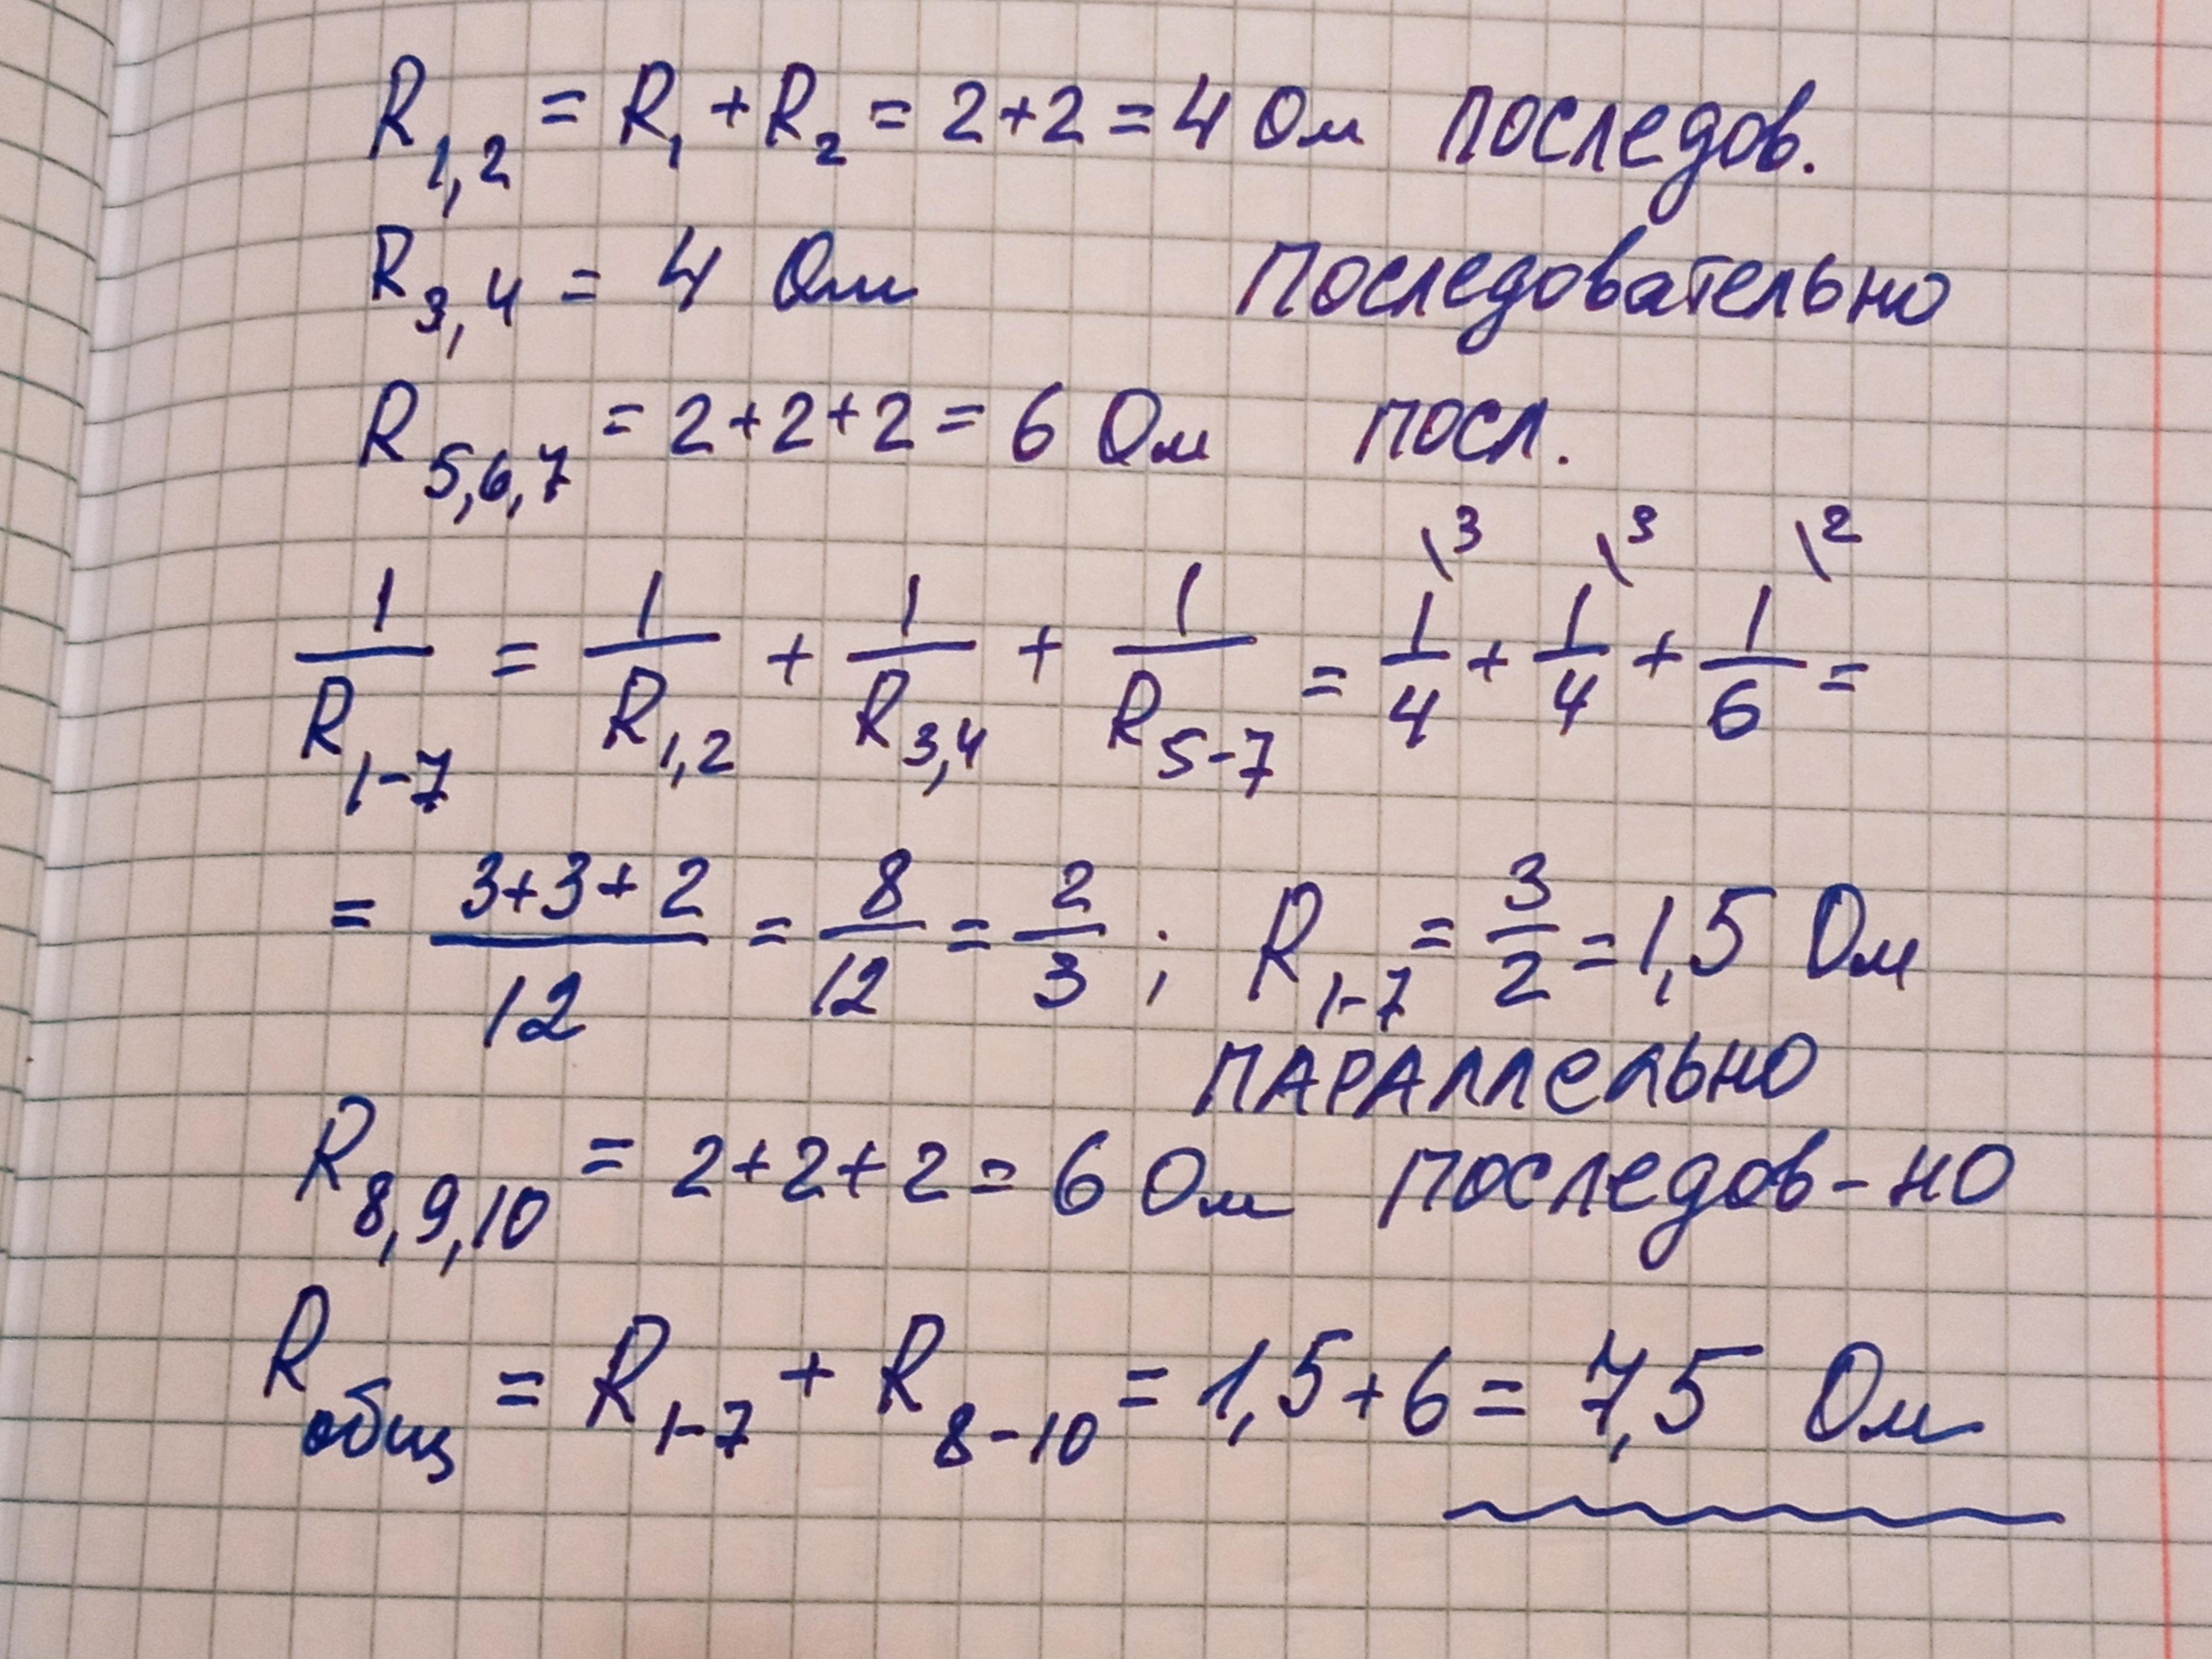 R1,2 = R1 + R2 = 2+2 = 4 Ом последов.
R3,4 = 4 Ом Последовательно
R5,6,7 = 2+2+2 = 6 Ом посл.
\3 \3 \2
1/R1-7 = 1/R1,2 + 1/R3,4 + 1/R5-7 = 1/4 + 1/4 + 1/6 =
= (3+3+2)/12 = 8/12 = 2/3 ; R1-7 = 3/2 = 1,5 Ом
ПАРАЛЛЕЛЬНО
R8,9,10 = 2+2+2 = 6 Ом последов-но
Rобщ = R1-7 + R8-10 = 1,5+6 = 7,5 Ом